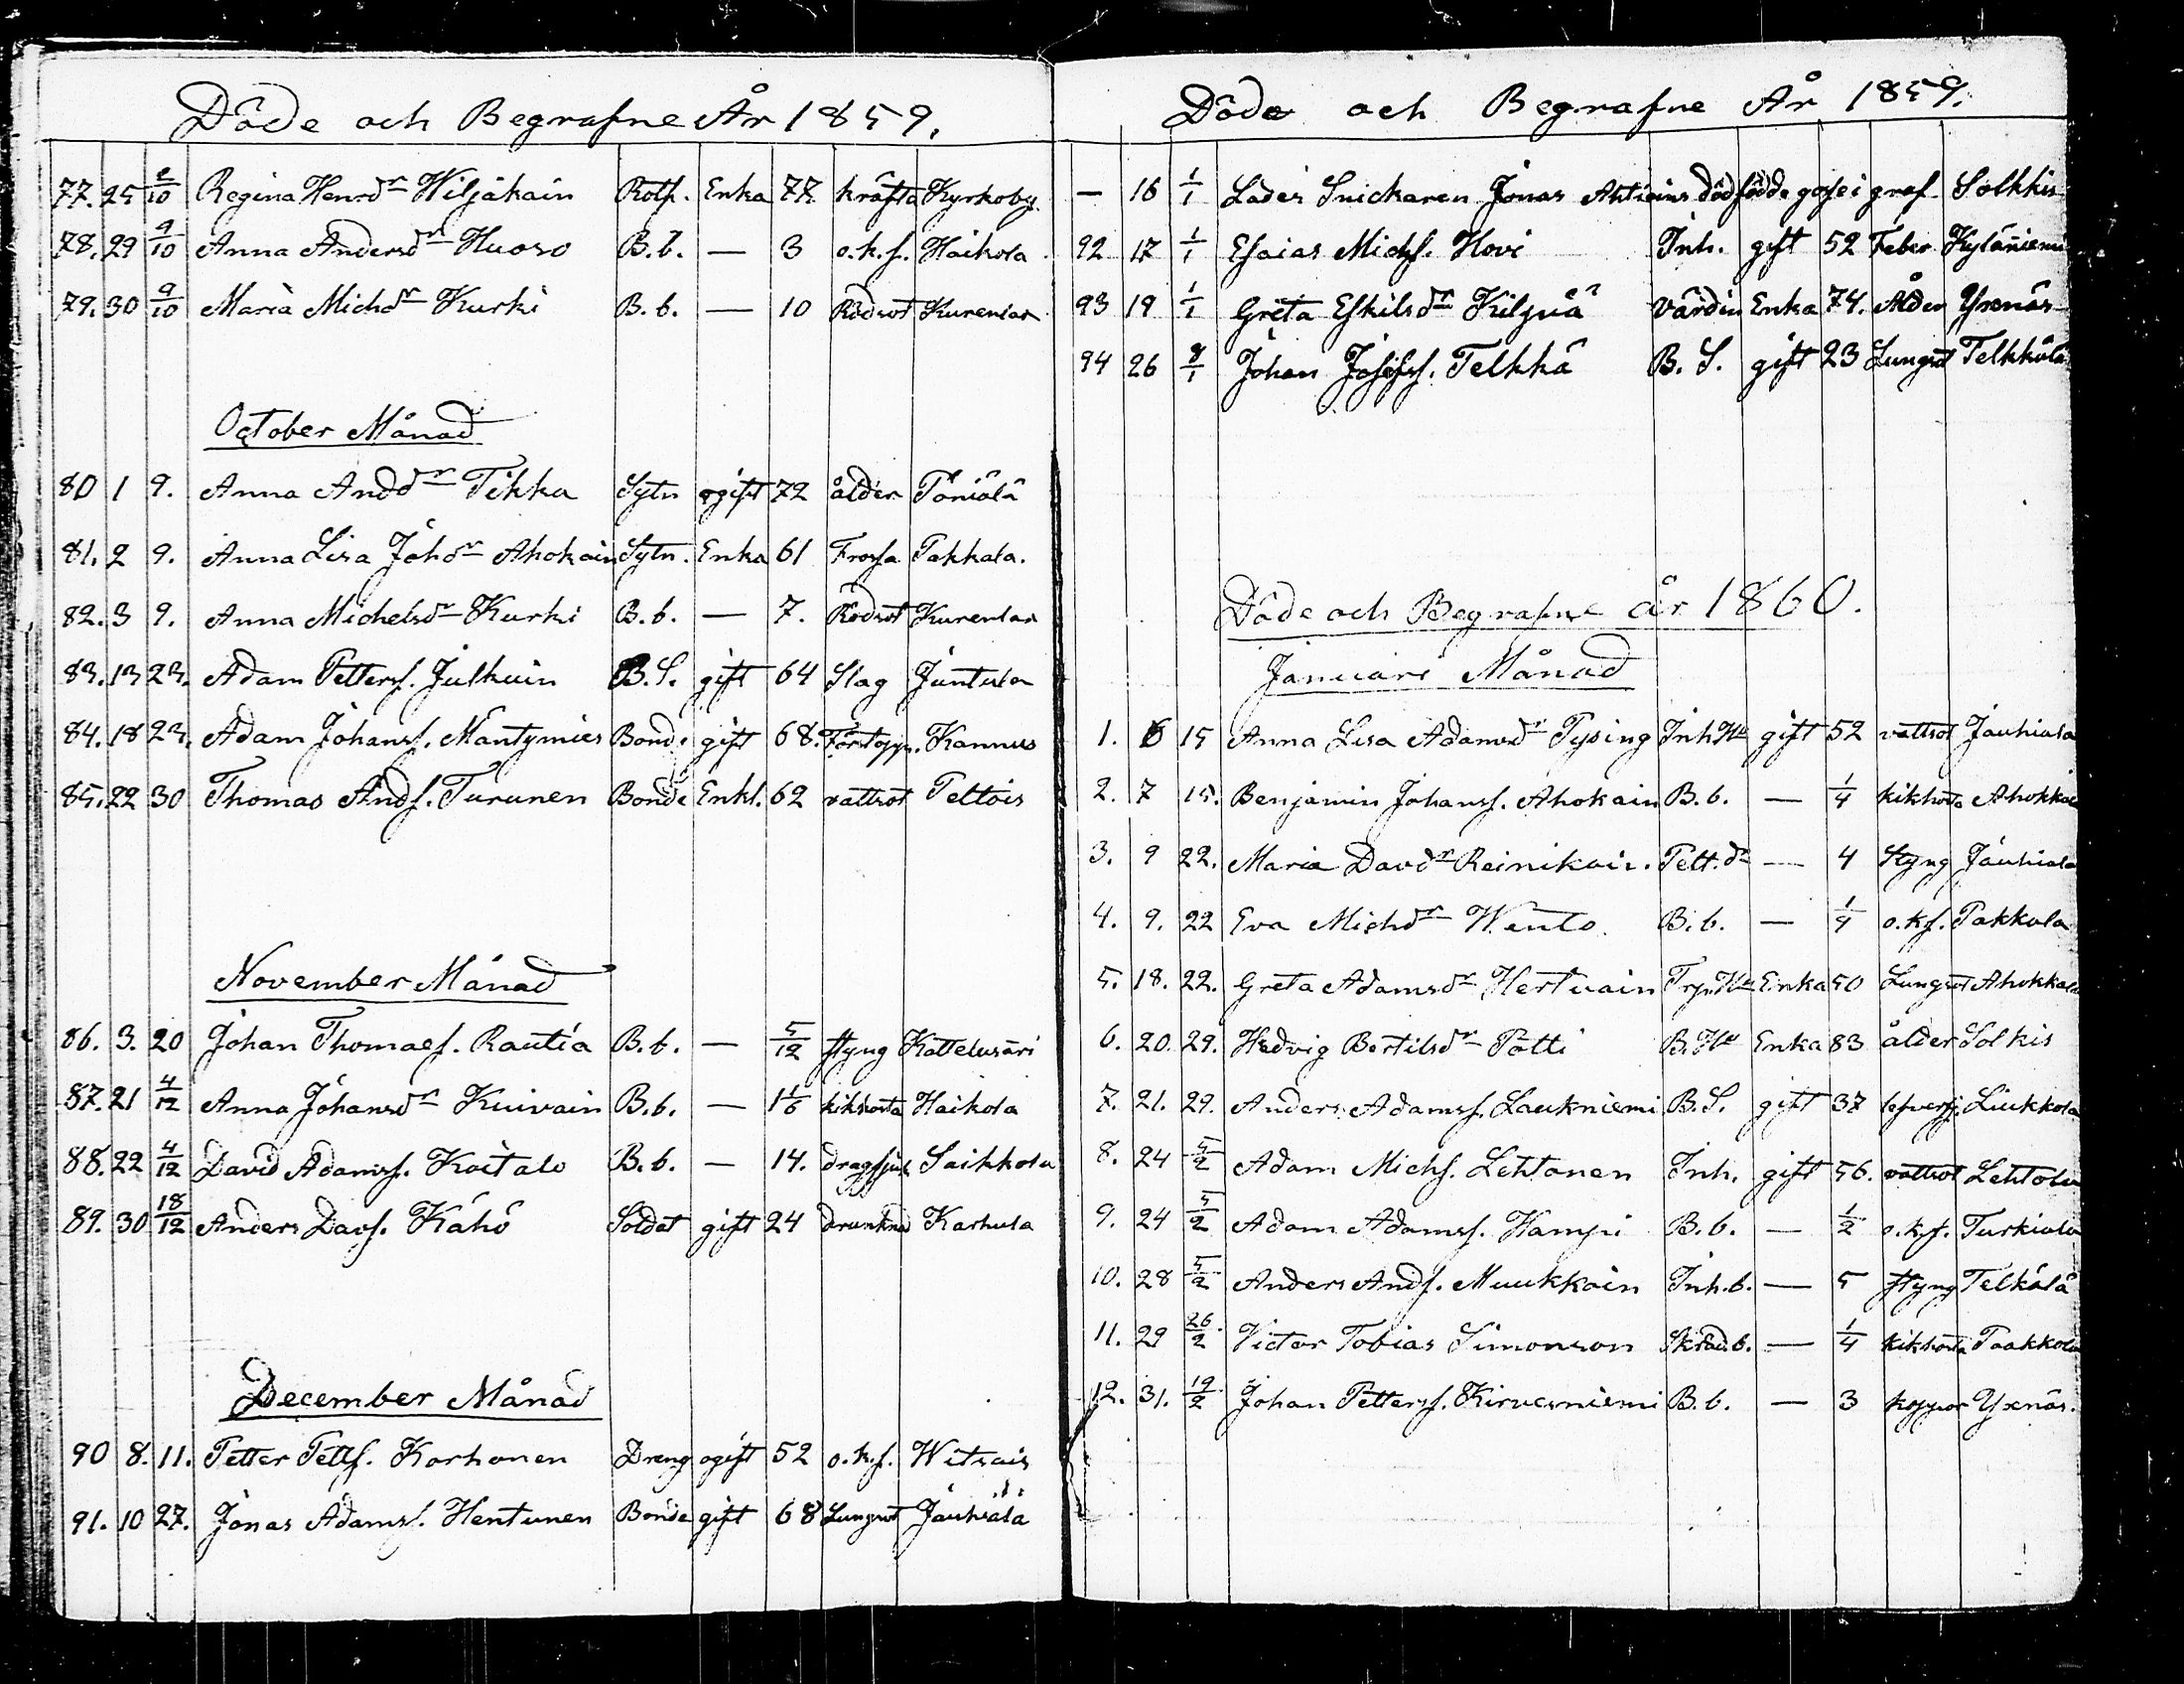 Döde och Begrafne År 1859.
77. 25 2/10 Regina Henrdr Wiljakain Rotf. Enka 77. kräfta Kyrkoby
78. 29 9/10 Anna Andersdr Huoso B.b. — 3 o.k.s. Haikola
79. 30 9/10 Maria Michdr Kurki B.b. — 10 Rödsot Kurenlax
October Månad
80 1 9. Anna Anddr Tikka Sytn ogift 72 ålder Töniälä
81. 2 9. Anna Lisa Johdr Ahokain Sytn. Enka 61 Frossa Pakkala.
82. 3 9. Anna Michelsdr Kurki B.b. — 7. Rödsot Kurenlax
83. 13 23. Adam Petterss. Julkuin B.S. gift 64 Slag Juntula
84. 18 23. Adam Johanss. Mäntymies Bonde gift 68. Förstopp. Kannus
85. 22 30 Thomas Ands. Turunen Bonde Enkl. 62 vattsot Peltois
November Månad
86. 3. 20 Johan Thomaes. Rautia B.b. — 5/12 styng Kattelusari
87. 21 4/12 Anna Johansdr Kuivain B.b. — 1 1/6 kikhosta Haikola
88. 22 4/12 David Adamss. Koitalo B.b. — 14. dragsjuk Saikkola
89. 30 18/12 Anders Davs. Kähö Soldat gift 24 drunknad Karhula
December Månad
90 8. 11. Petter Petts. Korhonen Dreng ogift 52 o.k.s. Witsais
91. 10 27. Jonas Adamss. Hentunen Bonde gift 68 Lungsot Jauhiala
Döde och Begrafne År 1859.
— 16 1/1 Lades Snickaren Jonas Ahtiains dödfödde gosse i graf. Solkkis
92 17 1/1 Esaias Michs. Hovi Inh. gift 52 Feber Kyläniemi
93 19 1/1 Greta Eskilsdr Kiljuä Värdin Enka 74. Ålder Yxnäs
94 26 8/1 Johan Josefss. Telkkä B.S. gift 23 Lungsot Telkkälä
Döde och Begrafne år 1860.
Januari Månad
1. 6 15 Anna Lisa Adamsdr Pysing Inh Hu gift 52 vattsot Jauhiala
2. 7 15. Benjamin Johanss. Ahokain B.b. — 1/4 kikhosta Ahokkala
3. 9 22. Maria Davdr Reinikain. Pett. dr — 4 Styng Jauhiala
4. 9. 22 Eva Michdr Wento B.b. — 1/4 o.k.s. Pakkala
5. 18. 22. Greta Adamsdr Hertuain Hu Enka 50 Lungsot Ahokkala
6. 20. 29. Hedvig Bertilsdr Pätti B. Hu Enka 83 ålder Solkis
7. 21. 29. Anders Adamss. Laukniemi B.S. gift 37 lefversj. Liukkola
8. 24 5/2 Adam Michs. Lehtonen Inh. gift 56. vattsot Lehtola
9. 24 5/2 Adam Adamss. Hampi B.b. — 1/2 o.k.s. Turkiala
10. 28 5/2 Anders Ands. Muukkain Inh.b. — 5 styng Telkälä
11. 29 26/2 Victor Tobias Simonson Skräd.b. — 1/4 kikhosta Paakkola
12. 31. 19/2 Johan Petterss. Kirvesniemi B.b. — 3 koppor Yxnäs.